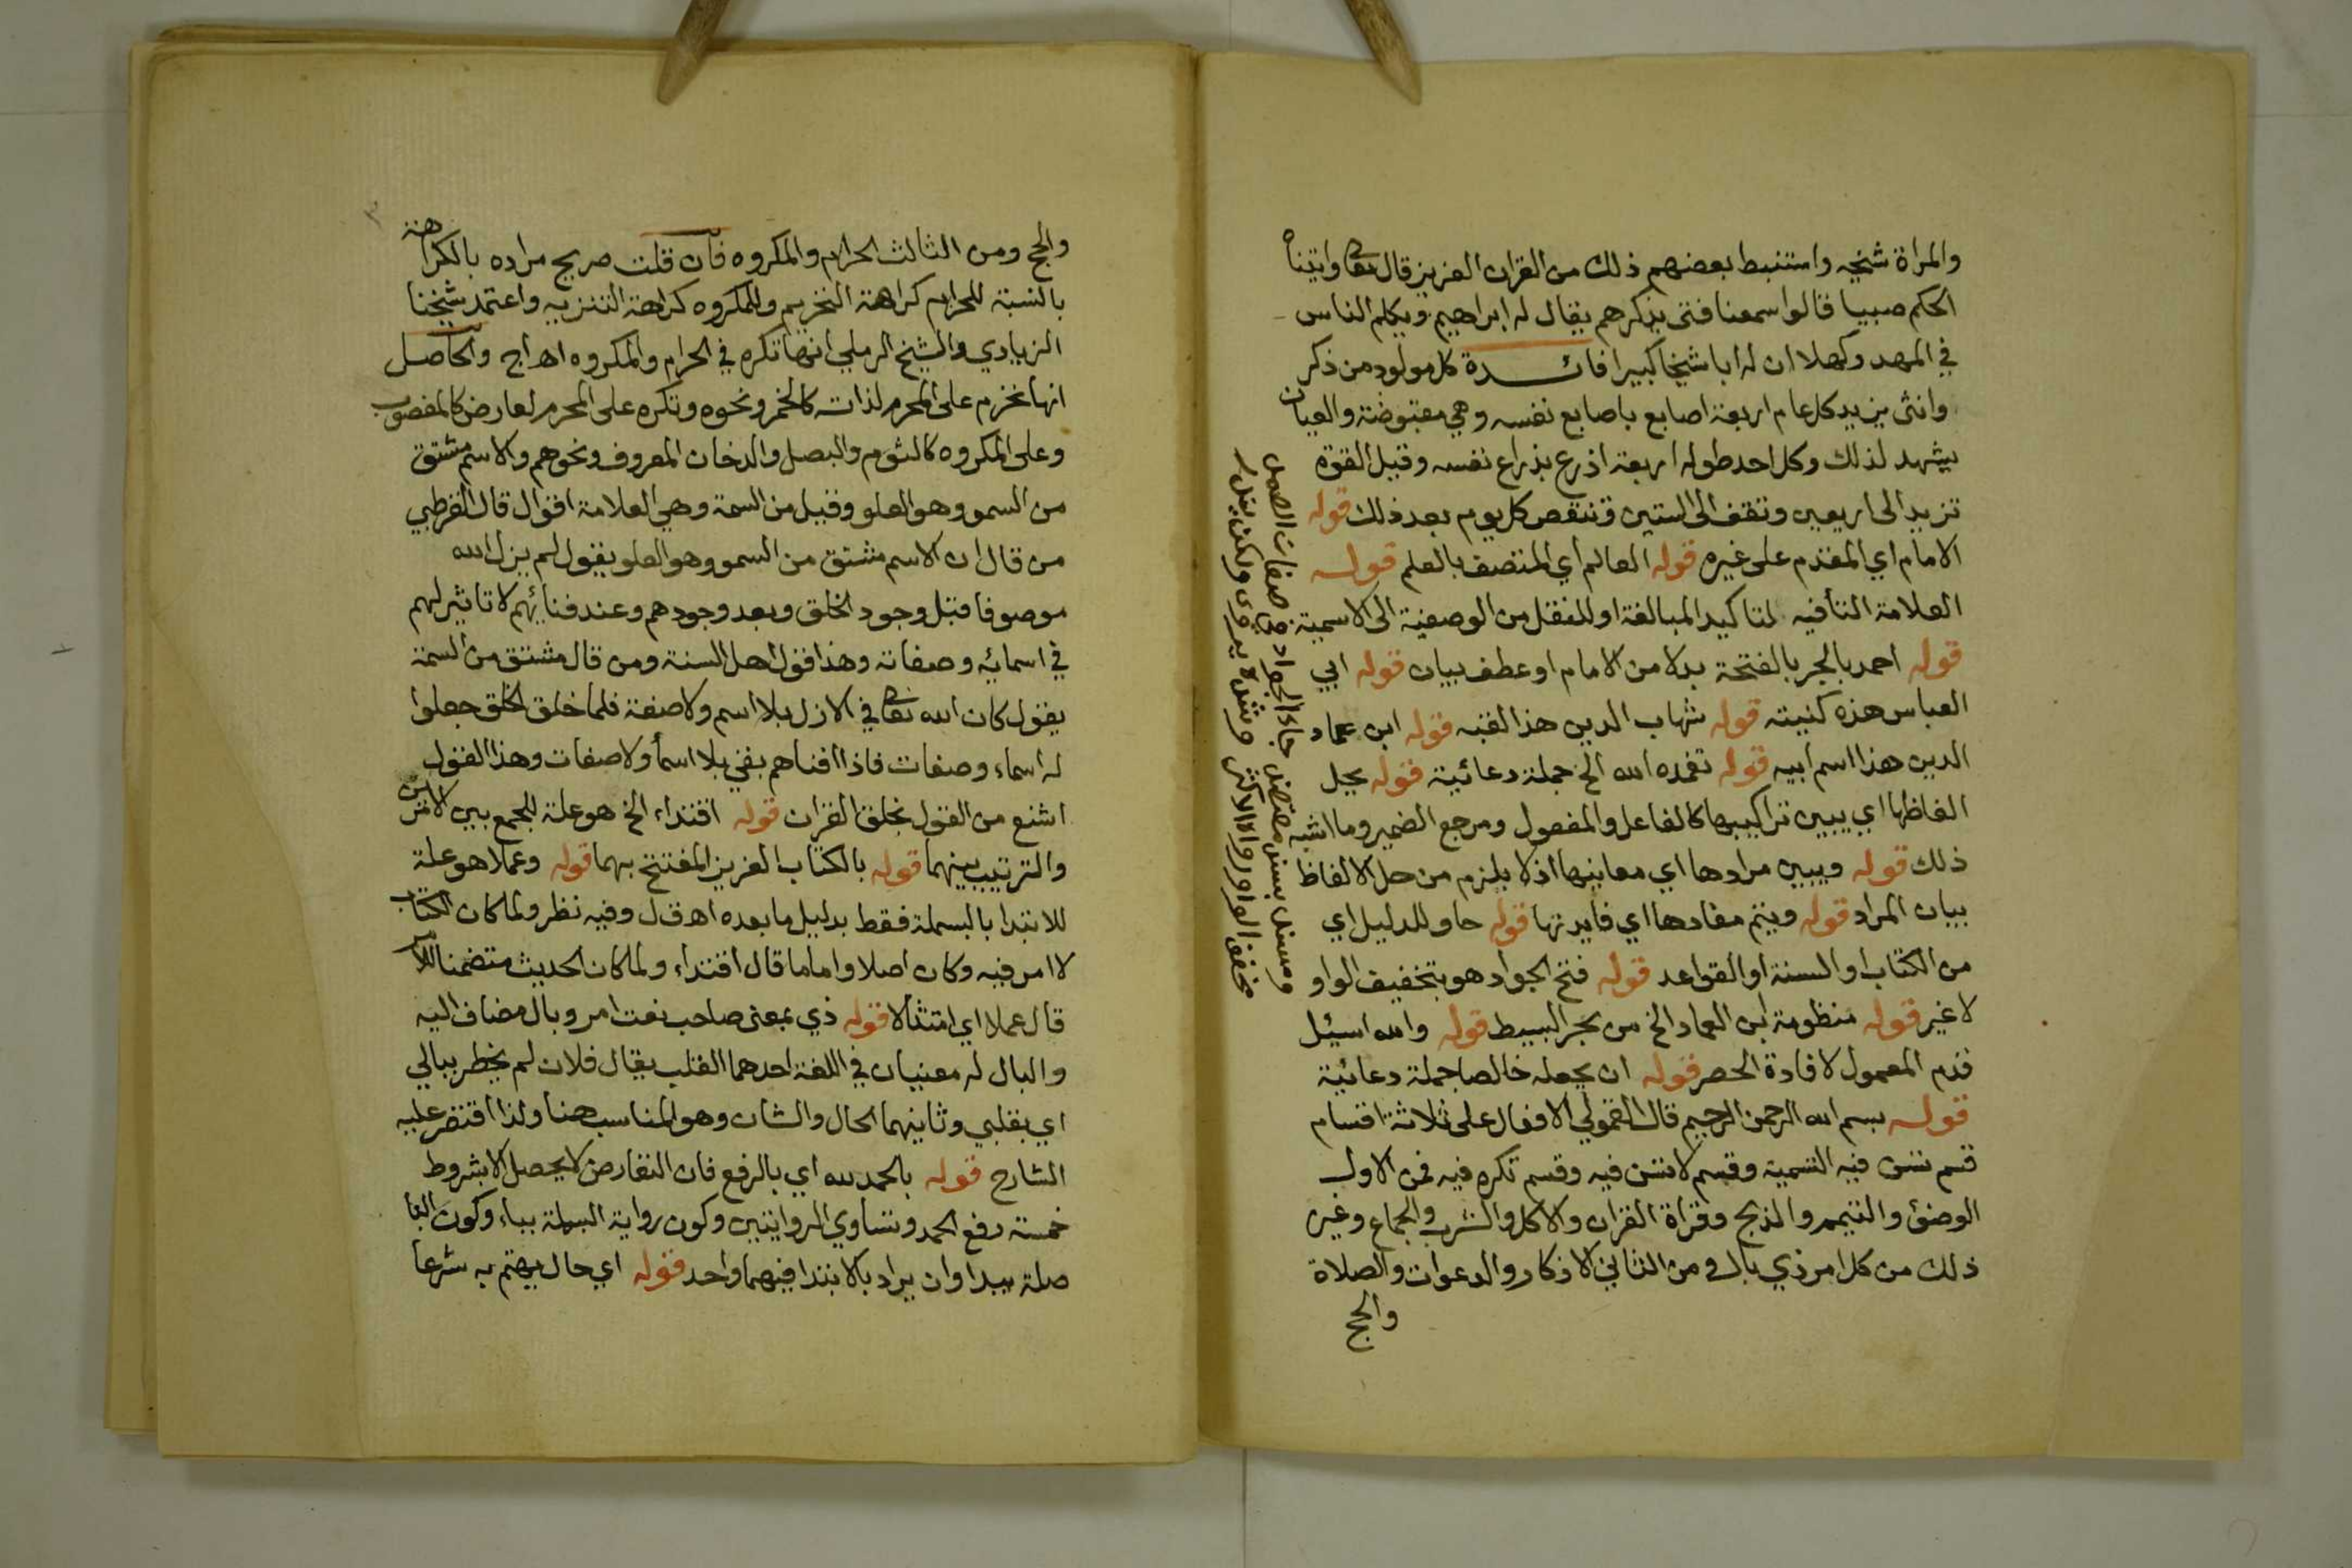 والمراة شيخه واستنبط بعضهم ذلك من القران العزيز قال تعالى واتيناه
الحكم صبيا قالوا سمعنا فتى يذكرهم يقال له ابراهيم ويكلم الناس
في المهد وكهلا ان له ابا شيخا كبيرا فائدة كل مولود من ذكر
وانثى يزيد كل عام اربعة اصابع باصابع نفسه وهي مقبوضة والعيان
يشهد لذلك وكل احد طوله اربعة اذرع بذراع نفسه وقيل القوة
تزيد الى اربعين وتقف الى الستين وتنقص كل يوم بعد ذلك قوله
الامام اي المقدم على غيره قوله العالم اي المتصف بالعلم قوله
العلامة التا فيه لتاكيد المبالغة او للنقل من الوصفية الى الاسمية
قوله احمد بالجر بالفتحة بدلا من الامام او عطف بيان قوله ابي
العباس هذه كنيته قوله شهاب الدين هذا لقبه قوله ابن عماد
الدين هذا اسم ابيه قوله تغمده الله الخ جملة دعائية قوله يحل
الفاظها اي يبين تراكيبها كالفاعل والمفعول ومرجع الضمير وما اشبه
ذلك قوله ويبين مرادها اي معاينها اذ لا يلزم من حل الالفاظ
بيان المراد قوله ويتم مفادها اي فايدتها قوله حاو للدليل اي
من الكتاب او السنة او القواعد قوله فتح الجواد هو بتخفيف الواو
لا غير قوله منظومة ابن العماد الخ من بحر البسيط قوله والله اسئل
قدم المعمول لافادة الحصر قوله ان يجعله خالصا جملة دعائية
قوله بسم الله الرحمن الرحيم قال القمولي الافعال على ثلاثة اقسام
قسم تسن فيه التسمية وقسم لا تسن فيه وقسم تكره فيه فمن الاول
الوضوء والتيمم والذبح وقراة القران والاكل والشرب والجماع وغير
ذلك من كل امر ذي بال ومن الثاني الاذكار والدعوات والصلاة
والحج
جاء الجواد من صفات الصمد
مخفف الواو رواه الاكثر وشده يروى ولكن يندر
والحج ومن الثالث الحرام والمكروه فان قلت صريح مراده بالكراهة
بالنسبة للحرام كراهة التحريم وللمكروه كراهة التنزيه واعتمد شيخنا
الزيادي والشيخ الرملي انها تكره في الحرام والمكروه اهـ اج والحاصل
انها تحرم على المحرم لذاته كالخمر ونحوه وتكره على المحرم لعارض كالمغصوب
وعلى المكروه كالثوم والبصل والدخان المعروف ونحوهم والاسم مشتق
من السمو وهو العلو وقيل من السمة وهي العلامة اقوال قال القرطبي
من قال ان الاسم مشتق من السمو وهو العلو يقول لم يزل الله
موصوفا قبل وجود الخلق وبعد وجودهم وعند فنائهم لا تاثير لهم
في اسمائه وصفاته وهذا قول اهل السنة ومن قال مشتق من السمة
يقول كان الله تعالى في الازل بلا اسم ولا صفة فلما خلق الخلق جعلوا
له اسماء وصفات فاذا افناهم بقي بلا اسما ولا صفات وهذا القول
اشنع من القول بخلق القران قوله اقتداء الخ هو علة للجمع بين الامرين
والترتيب بينهما قوله بالكتاب العزيز المفتتح بهما قوله وعملا هو علة
للابتدا بالبسملة فقط بدليل ما بعده اهـ ق ل وفيه نظر ولما كان الكتاب
لا امر فيه وكان اصلا واماما قال اقتداء ولما كان الحديث متضمنا للامر
قال عملا اي امتثالا قوله ذي بمعنى صاحب نعت امر وبال مضاف اليه
والبال له معنيان في اللغة احدهما القلب يقال فلان لم يخطر ببالي
اي بقلبي وثانيهما الحال والشان وهو المناسب هنا ولذا اقتصر عليه
الشارح قوله بالحمد لله اي بالرفع فان التعارض لا يحصل الا بشروط
خمسة رفع الحمد وتساوي الروايتين وكون رواية البسملة بباء وكون البا
صلة يبدا وان يراد بالابتدا فيهما واحد قوله اي حال يهتم به شرعا